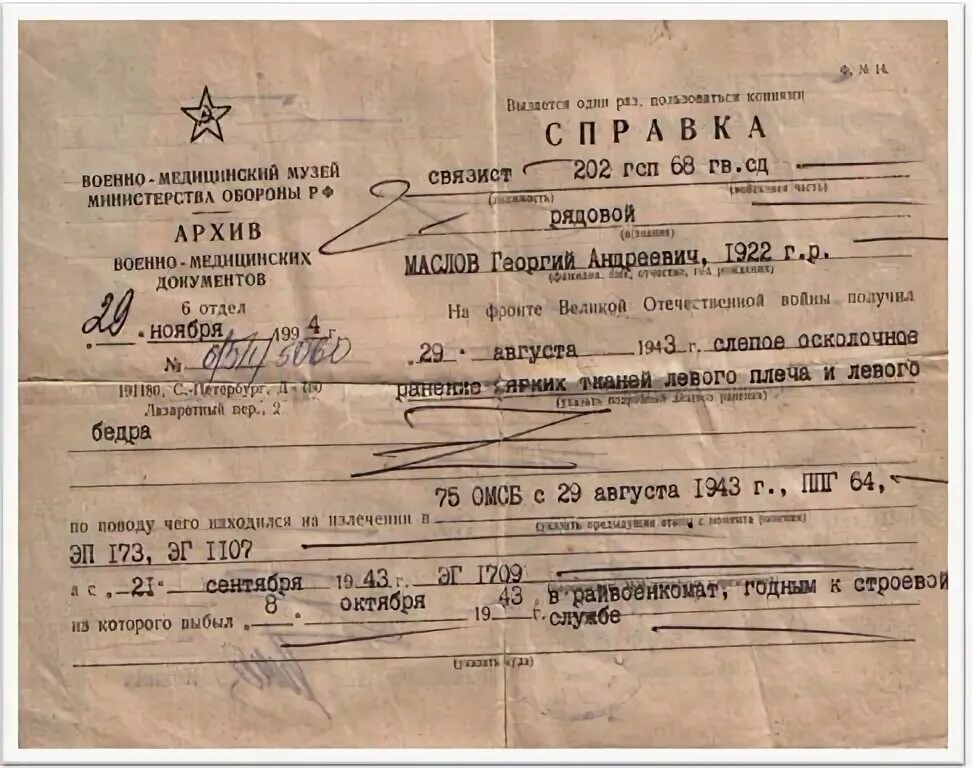 Ф. № 14.
Выдается один раз, пользоваться копиями
СПРАВКА
ВОЕННО-МЕДИЦИНСКИЙ МУЗЕЙ
МИНИСТЕРСТВА ОБОРОНЫ РФ
АРХИВ
ВОЕННО-МЕДИЦИНСКИХ
ДОКУМЕНТОВ
6 отдел
„29" ноября 1994 г.
№
191180, С.-Петербург, Д-180
Лазаретный пер., 2
связист 202 гсп 68 гв.сд
(должность) (войсковая часть)
рядовой
(звание)
МАСЛОВ Георгий Андреевич, 1922 г.р.
(фамилия, имя, отчество, год рождения)
На фронте Великой Отечественной войны получил
„29" августа 1943 г. слепое осколочное
ранение мягких тканей левого плеча и левого
(указать подробный диагноз ранения)
бедра
75 ОМСБ с 29 августа 1943 г., ППГ 64,
по поводу чего находился на излечении в
ЭП 173, ЭГ 1107
а с „21" сентября 1943 г. ЭГ 1709
из которого выбыл „8" октября 1943 г. в райвоенкомат, годным к строевой
службе
(указать куда)